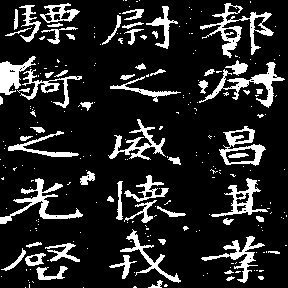 都尉昌其業
尉之威懷戎
驃騎之光啓